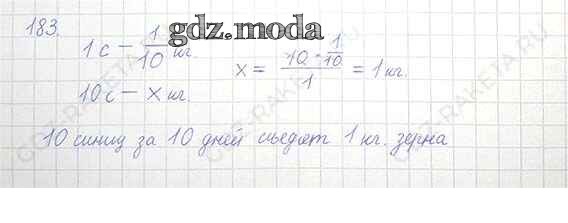 183.
gdz.moda
1 с – 1/10 кг.
10 с – x кг.
x = (10 · 1/10)/1 = 1 кг.
10 синиц за 10 дней съедят 1 кг. зерна
GDZ-RAKETA.RU